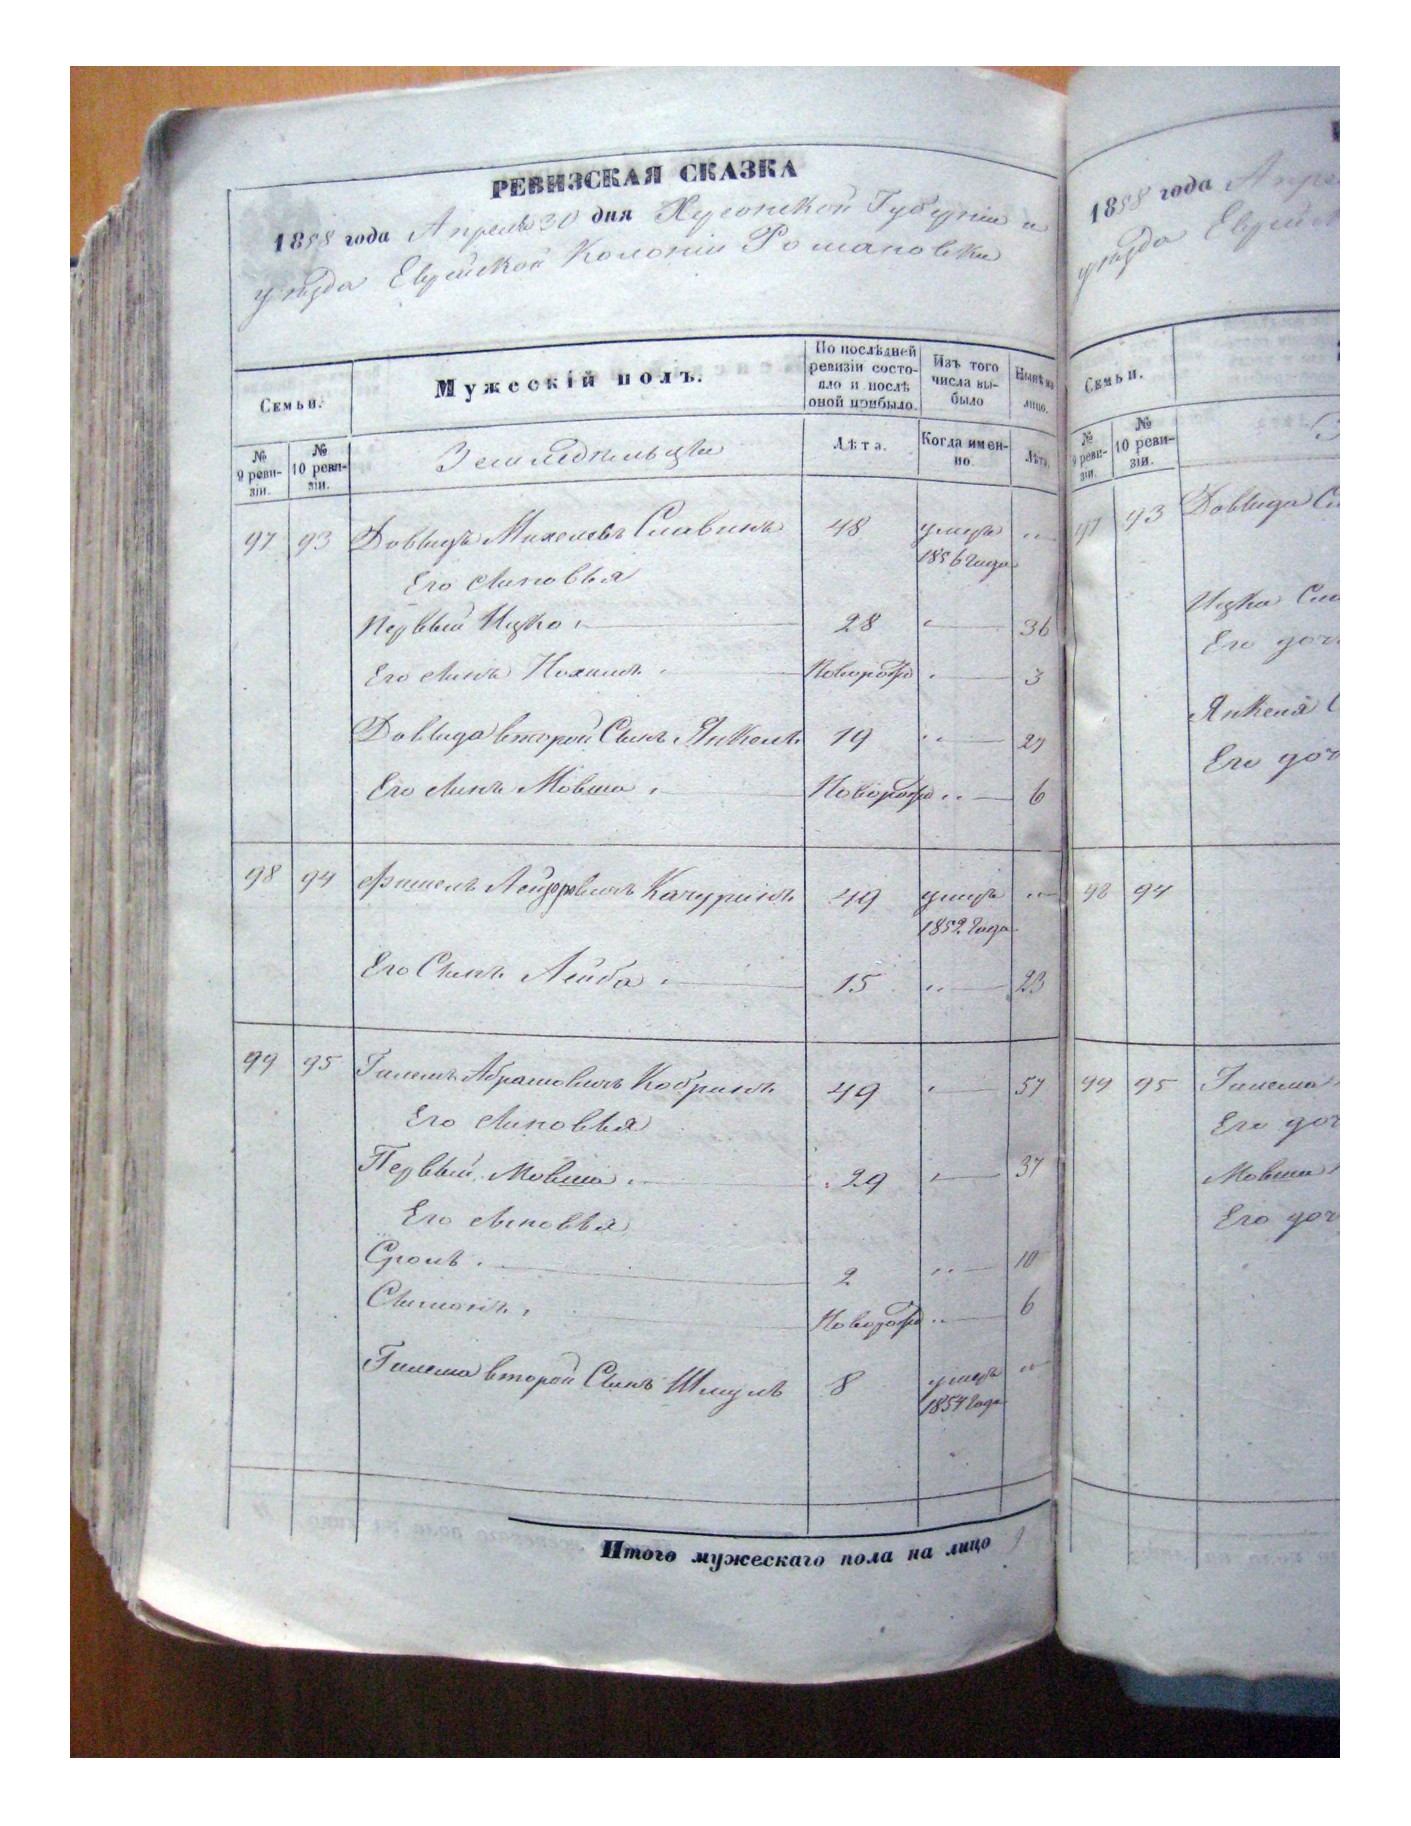 РЕВИЗСКАЯ СКАЗКА
1858 года Апреля 30 дня Херсонской Губерніи и
уѣзда Еврейской Колоніи Романовки
Семьи.
Мужескій полъ.
По послѣдней ревизіи состояло и послѣ оной прибыло.
Изъ того числа выбыло
Нынѣ на лицо.
№ 9 ревизіи.
№ 10 ревизіи.
Земледѣльцы
Лѣта.
Когда именно.
Лѣта.
97 93 Довыдъ Михелевъ Славинъ 48 умеръ 1856 года „
Его Сыновья
Первый Ицко 28 „ 36
Его Сынъ Нохимъ Новорожд „ 3
Довыда второй Сынъ Янкель 19 „ 27
Его Сынъ Мовша Новорожд „ 6
98 94 Фишель Лейзеровичъ Качуринъ 49 умеръ 1852 года „
Его Сынъ Лейба 15 „ 23
99 95 Гилемъ Абрамовичъ Кобринъ 49 „ 57
Его Сыновья
Первый Мовша 29 „ 37
Его Сыновья
Сроль 2 „ 10
Симонъ Новорожд „ 6
Гилема второй Сынъ Шмуль 8 умеръ 1854 года „
Итого мужескаго пола на лицо 9
1858 года
уѣзда
Семьи.
№ 9 ревизіи.
№ 10 ревизіи.
97 93 Довыда
Ицка
Его доч
Янкеля
Его доч
98 94
99 95 Гилема
Его доч
Мовши
Его доч